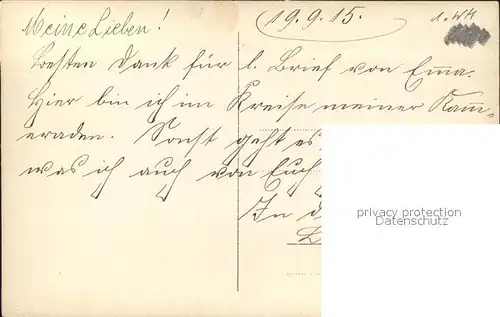 Meine Lieben!
19.9.15.
1. WK
Besten Dank für l. Brief von Emma.
Hier bin ich im Kreise meiner Kam-
eraden. Sonst geht es
was ich auch von Euch
In d
privacy protection
Datenschutz